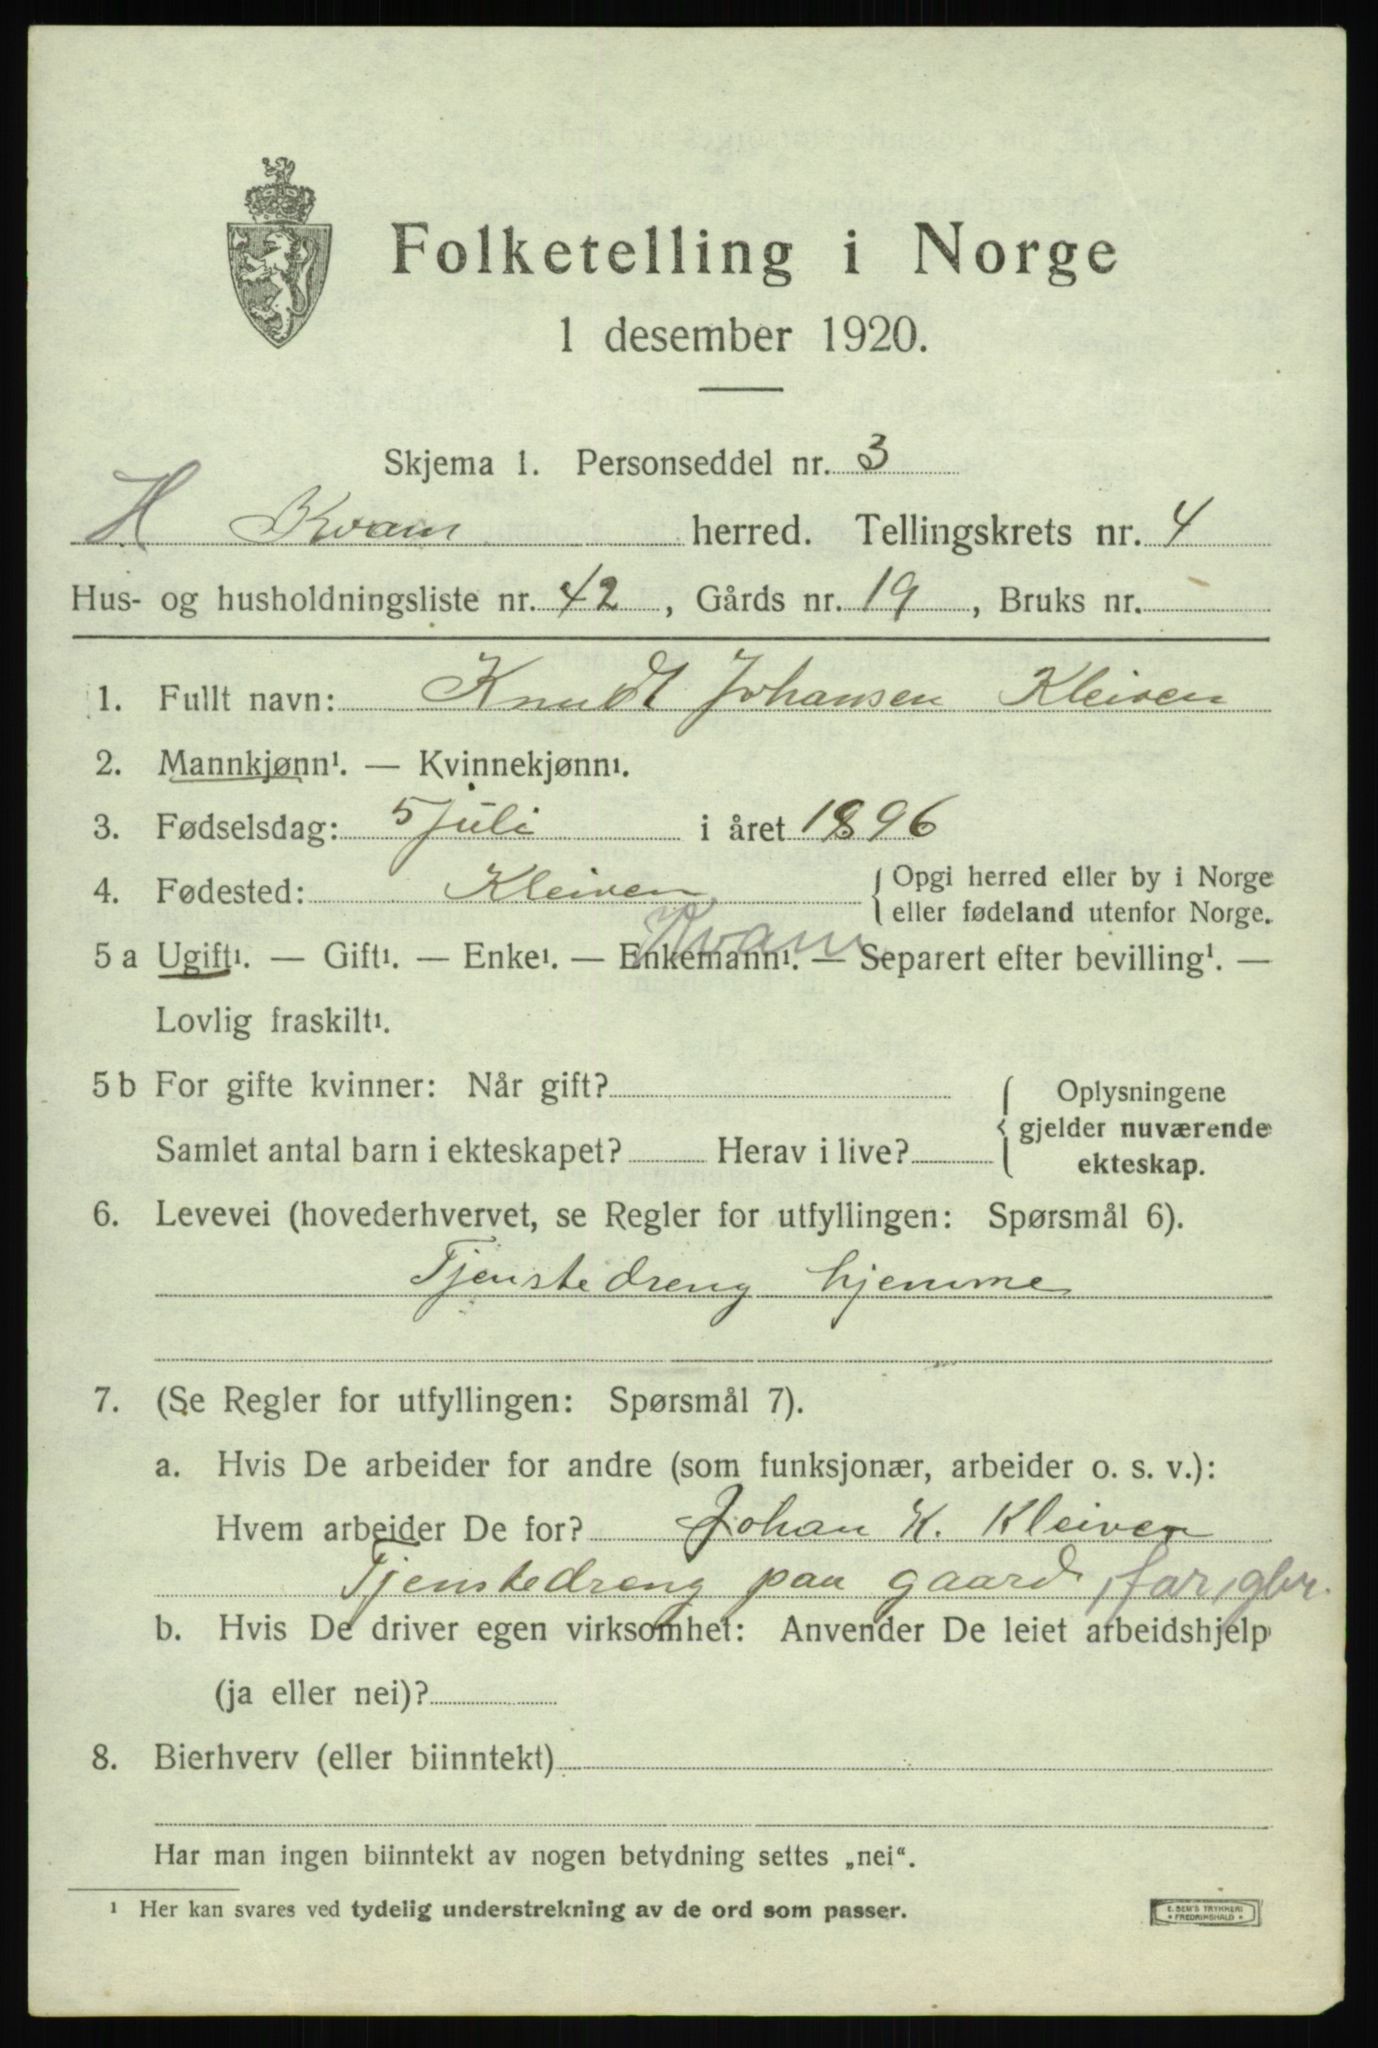 Folketelling i Norge
1 desember 1920.
Skjema 1. Personseddel nr. 3
H Kvam herred. Tellingskrets nr. 4
Hus- og husholdningsliste nr. 42, Gårds nr. 19, Bruks nr. -
1. Fullt navn: Knudt Johansen Kleiven
2. Mannkjønn¹. — Kvinnekjønn¹.
3. Fødselsdag: 5 Juli i året 1896
4. Fødested: Kleiven { Opgi herred eller by i Norge
eller fødeland utenfor Norge.
Kvam
5 a Ugift¹. — Gift¹. — Enke¹. — Enkemann¹. — Separert efter bevilling¹. —
Lovlig fraskilt¹.
5 b For gifte kvinner: Når gift? { Oplysningene
gjelder nuværende
Samlet antal barn i ekteskapet? Herav i live? ekteskap.
6. Levevei (hovederhvervet, se Regler for utfyllingen: Spørsmål 6).
Tjenstedreng hjemme
7. (Se Regler for utfyllingen: Spørsmål 7).
a. Hvis De arbeider for andre (som funksjonær, arbeider o. s. v.):
Hvem arbeider De for? Johan K. Kleiven
Tjenstedreng paa gaard, far, gbr.
b. Hvis De driver egen virksomhet: Anvender De leiet arbeidshjelp
(ja eller nei)?
8. Bierhverv (eller biinntekt)
Har man ingen biinntekt av nogen betydning settes „nei“.
¹ Her kan svares ved tydelig understrekning av de ord som passer.
E. SEM'S TRYKKERI
* FREDRIKSHALD *